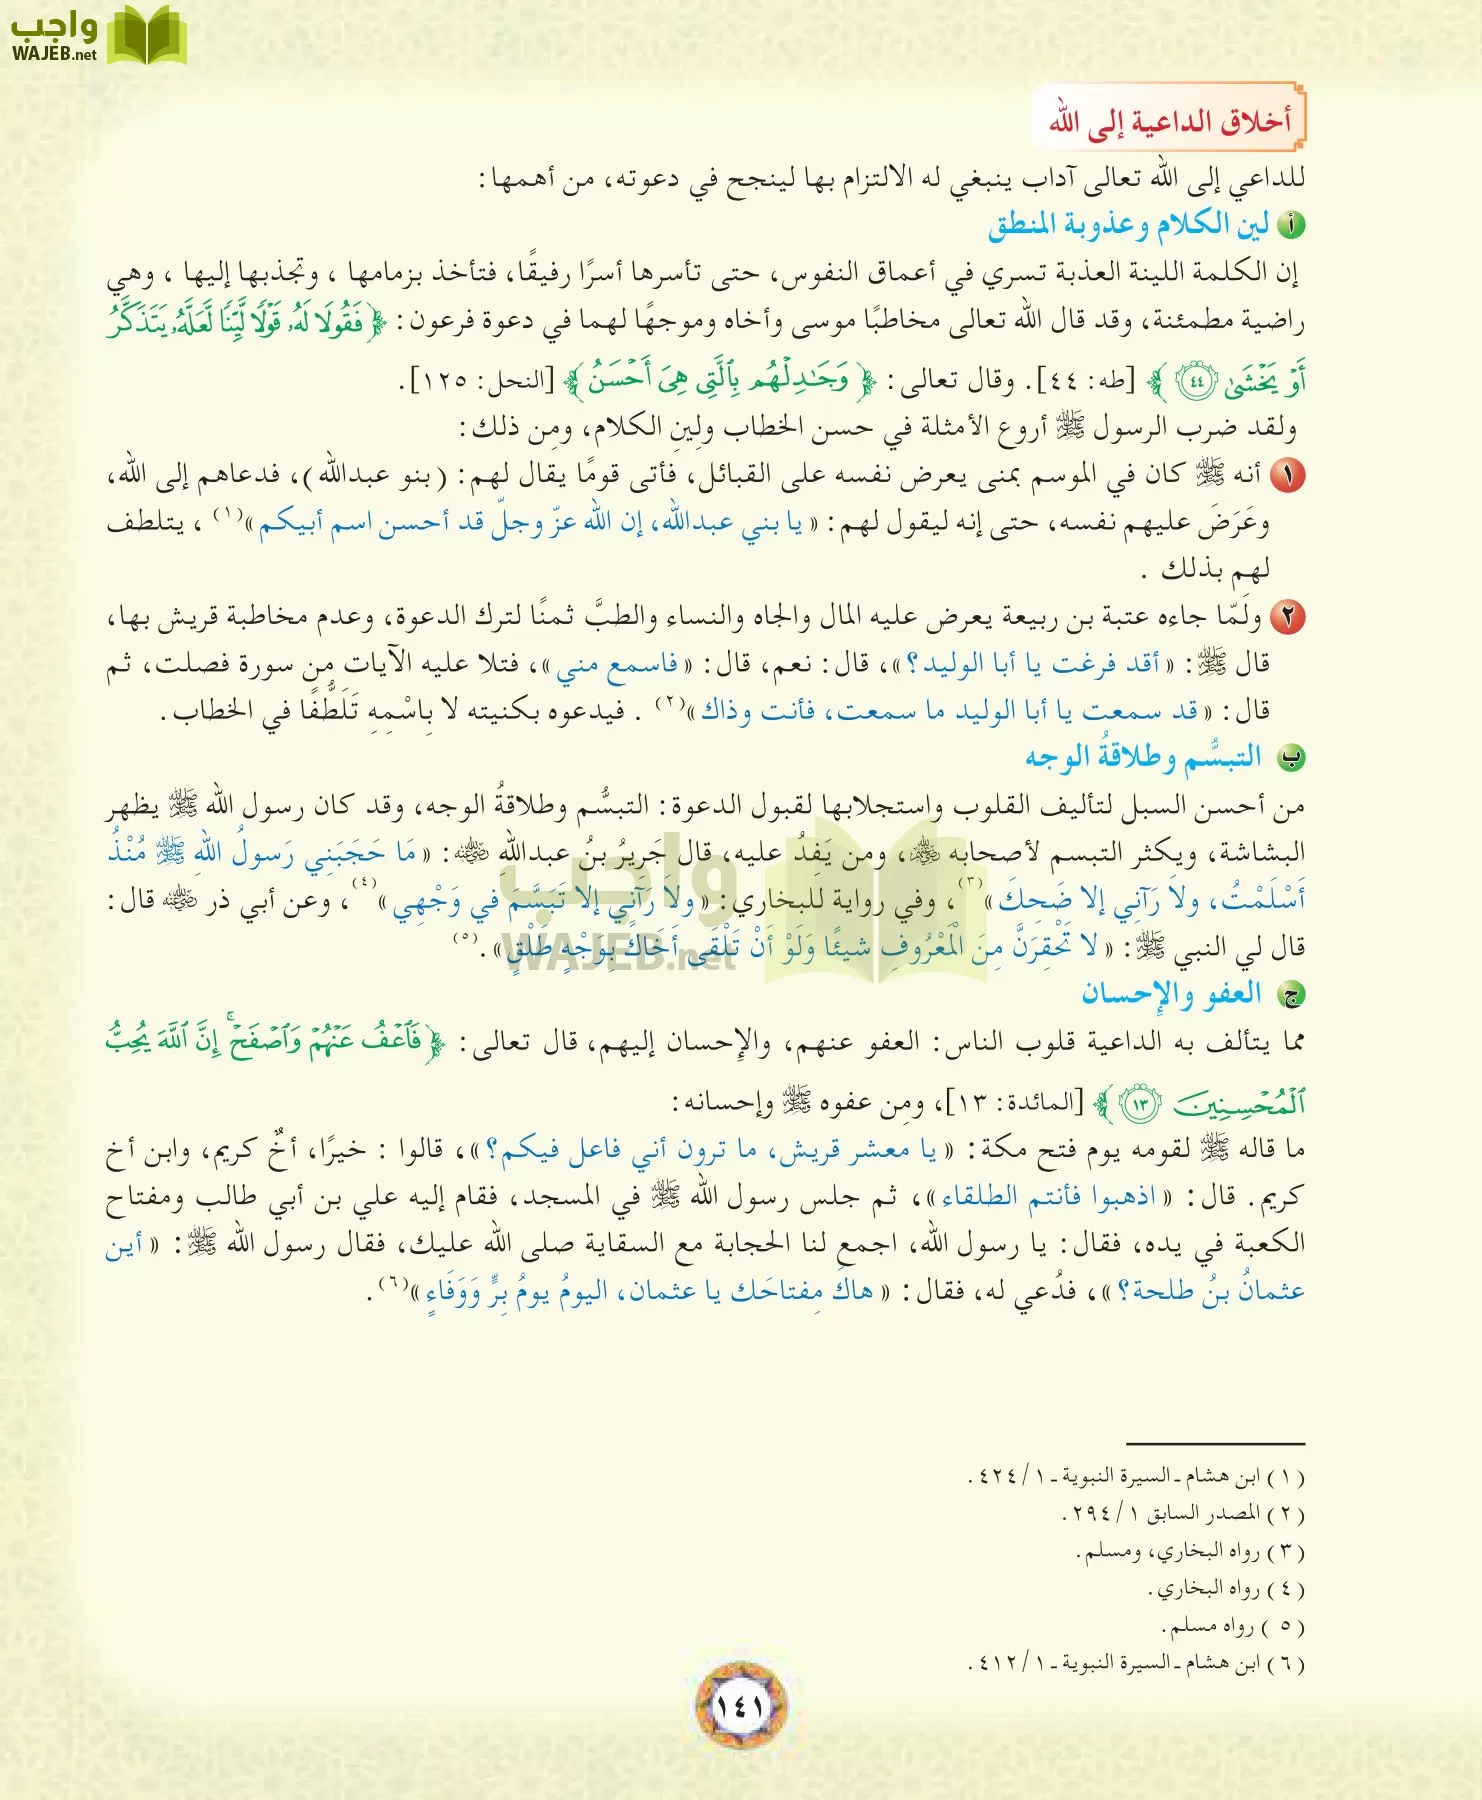 واجب
WAJEB.net
أخلاق الداعية إلى الله
للداعي إلى الله تعالى آداب ينبغي له الالتزام بها لينجح في دعوته، من أهمها:
أ لين الكلام وعذوبة المنطق
إن الكلمة اللينة العذبة تسري في أعماق النفوس، حتى تأسرها أسرًا رفيقًا، فتأخذ بزمامها ، وتجذبها إليها ، وهي
راضية مطمئنة، وقد قال الله تعالى مخاطبًا موسى وأخاه وموجهًا لهما في دعوة فرعون: ﴿ فَقُولَا لَهُۥ قَوْلًا لَّيِّنًا لَّعَلَّهُۥ يَتَذَكَّرُ
أَوْ يَخْشَىٰ ٤٤ ﴾ [طه: ٤٤]. وقال تعالى: ﴿ وَجَٰدِلْهُم بِٱلَّتِى هِىَ أَحْسَنُ ﴾ [النحل: ١٢٥].
ولقد ضرب الرسول ﷺ أروع الأمثلة في حسن الخطاب ولِينِ الكلام، ومِن ذلك:
١ أنه ﷺ كان في الموسم بمنى يعرض نفسه على القبائل، فأتى قومًا يقال لهم: (بنو عبدالله)، فدعاهم إلى الله،
وعَرَضَ عليهم نفسه، حتى إنه ليقول لهم: «يا بني عبدالله، إن الله عزّ وجلّ قد أحسن اسم أبيكم»(١) ، يتلطف
لهم بذلك .
٢ ولَمّا جاءه عتبة بن ربيعة يعرض عليه المال والجاه والنساء والطبَّ ثمنًا لترك الدعوة، وعدم مخاطبة قريش بها،
قال ﷺ: «أقد فرغت يا أبا الوليد؟»، قال: نعم، قال: «فاسمع مني»، فتلا عليه الآيات من سورة فصلت، ثم
قال: «قد سمعت يا أبا الوليد ما سمعت، فأنت وذاك»(٢) . فيدعوه بكنيته لا بِاسْمِهِ تَلَطُّفًا في الخطاب.
ب التبسُّم وطلاقةُ الوجه
من أحسن السبل لتأليف القلوب واستجلابها لقبول الدعوة: التبسُّم وطلاقةُ الوجه، وقد كان رسول الله ﷺ يظهر
البشاشة، ويكثر التبسم لأصحابه رضي الله عنهم، ومن يَفِدُ عليه، قال جَرِيرُ بنُ عبداللهِ رضي الله عنه: «مَا حَجَبَنِي رَسولُ اللهِ ﷺ مُنْذُ
أَسْلَمْتُ، ولاَ رَآنِي إلا ضَحِكَ»(٣)، وفي رواية للبخاري: «ولاَ رَآنِي إلا تَبَسَّمَ في وَجْهِي»(٤)، وعن أبي ذر رضي الله عنه قال:
قال لي النبي ﷺ: «لا تَحْقِرَنَّ مِنَ الْمَعْرُوفِ شيئًا وَلَوْ أَنْ تَلْقَى أَخَاكَ بِوَجْهٍ طَلْقٍ»(٥).
واجب
WAJEB.net
ج العفو والإحسان
مما يتألف به الداعية قلوب الناس: العفو عنهم، والإحسان إليهم، قال تعالى: ﴿ فَٱعْفُ عَنْهُمْ وَٱصْفَحْ ۚ إِنَّ ٱللَّهَ يُحِبُّ
ٱلْمُحْسِنِينَ ١٣ ﴾ [المائدة: ١٣]، ومِن عفوه ﷺ وإحسانه:
ما قاله ﷺ لقومه يوم فتح مكة: «يا معشر قريش، ما ترون أني فاعل فيكم؟»، قالوا : خيرًا، أخٌ كريم، وابن أخ
كريم. قال: «اذهبوا فأنتم الطلقاء»، ثم جلس رسول الله ﷺ في المسجد، فقام إليه علي بن أبي طالب ومفتاح
الكعبة في يده، فقال: يا رسول الله، اجمع لنا الحجابة مع السقاية صلى الله عليك، فقال رسول الله ﷺ: «أين
عثمانُ بنُ طلحة؟»، فدُعي له، فقال: «هاكَ مِفتاحَك يا عثمان، اليومُ يومُ بِرٍّ وَوَفَاءٍ»(٦).
(١) ابن هشام ـ السيرة النبوية ـ ١/ ٤٢٤.
(٢) المصدر السابق ١/ ٢٩٤.
(٣) رواه البخاري، ومسلم.
(٤) رواه البخاري.
(٥) رواه مسلم.
(٦) ابن هشام ـ السيرة النبوية ـ ١/ ٤١٢.
١٤١